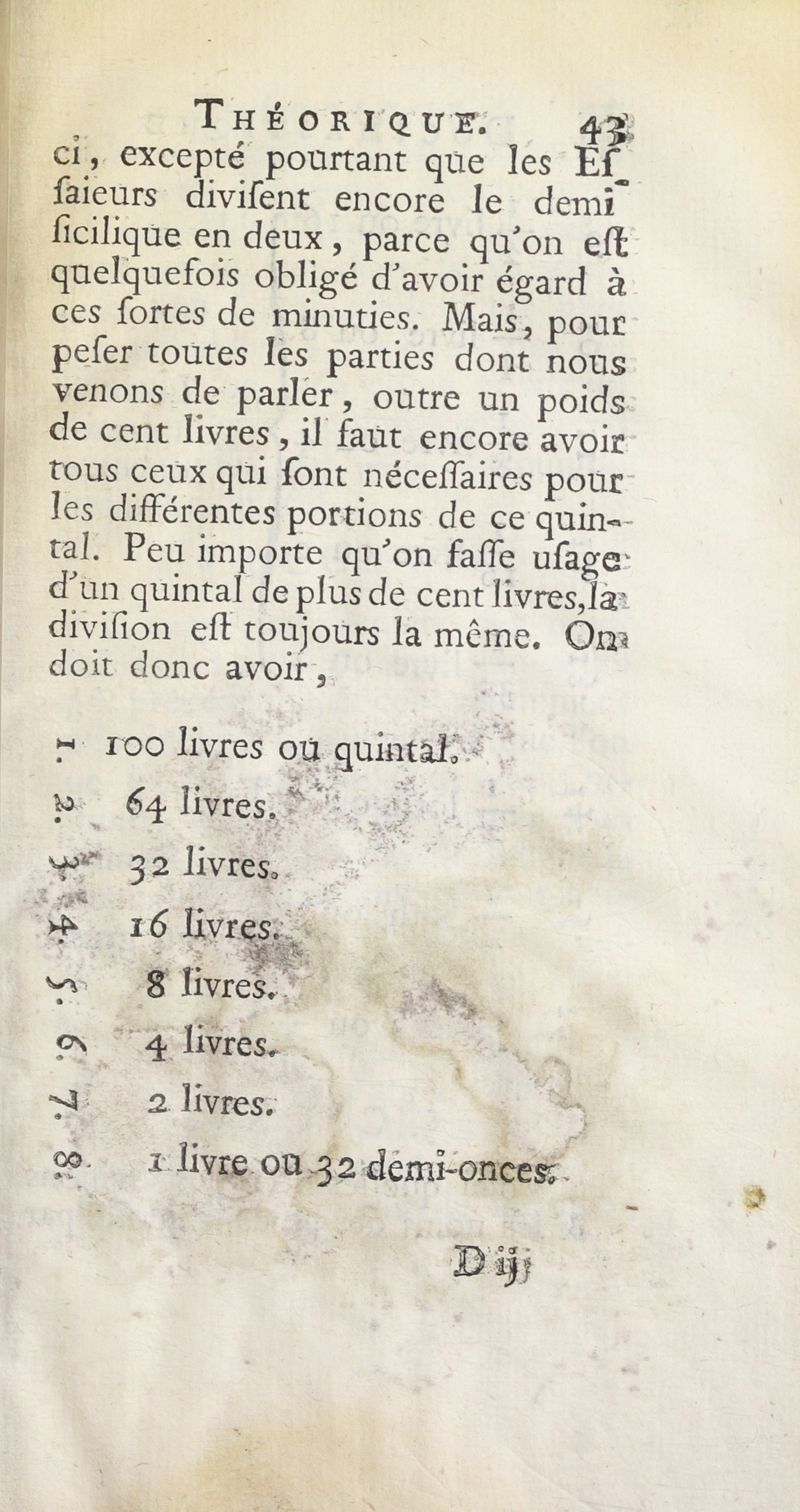 THÉORIQUE. 43
ci, excepté pourtant que les Eſ-
ſaieurs diviſent encore le demi
ſicilique en deux, parce qu'on eſt
quelquefois obligé d'avoir égard à
ces ſortes de minuties. Mais, pour
peſer toutes les parties dont nous
venons de parler, outre un poids
de cent livres, il faut encore avoir
tous ceux qui ſont néceſſaires pour
les différentes portions de ce quin-
tal. Peu importe qu'on faſſe uſage
d'un quintal de plus de cent livres, la
diviſion eſt toujours la même. On
doit donc avoir,
1. 100 livres ou quintal.
2. 64 livres.
3. 32 livres.
4. 16 livres.
5. 8 livres.
6. 4 livres.
7. 2 livres.
8. 1 livre ou 32 demi-onces.
D ij